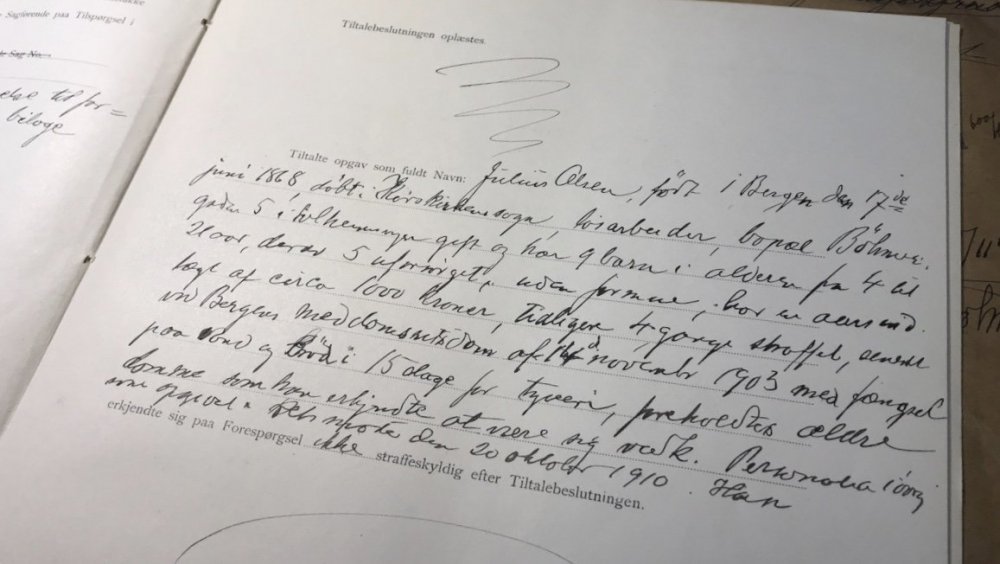 Sagførende paa Tilspørgsel i
te Sag No.
else til for=
bilage
Tiltalebeslutningen oplæstes.
Tiltalte opgav som fuldt Navn: Julius Olsen, født i Bergen den 17de
juni 1868, døbt i Korskirkens sogn, løsarbeider, bopæl
gaden 5 i gift og har 9 barn i alderen fra 4 til
21 aar, derav 5 uforsørget, uden formue, har en aarsind
tægt af circa 1000 kroner, tidligere 4 gange straffet, senest
ved Bergens meddomsretsdom af 14de november 1903 med fængsel
paa vand og brød i 15 dage for tyveri, foreholdtes ældre
domme som han erkjendte at være sig vedk. Personalia iøvrig
som opgivet i retsmøte den 20 oktober 1910. Han
erkjendte sig paa Forespørgsel ikke straffeskyldig efter Tiltalebeslutningen.